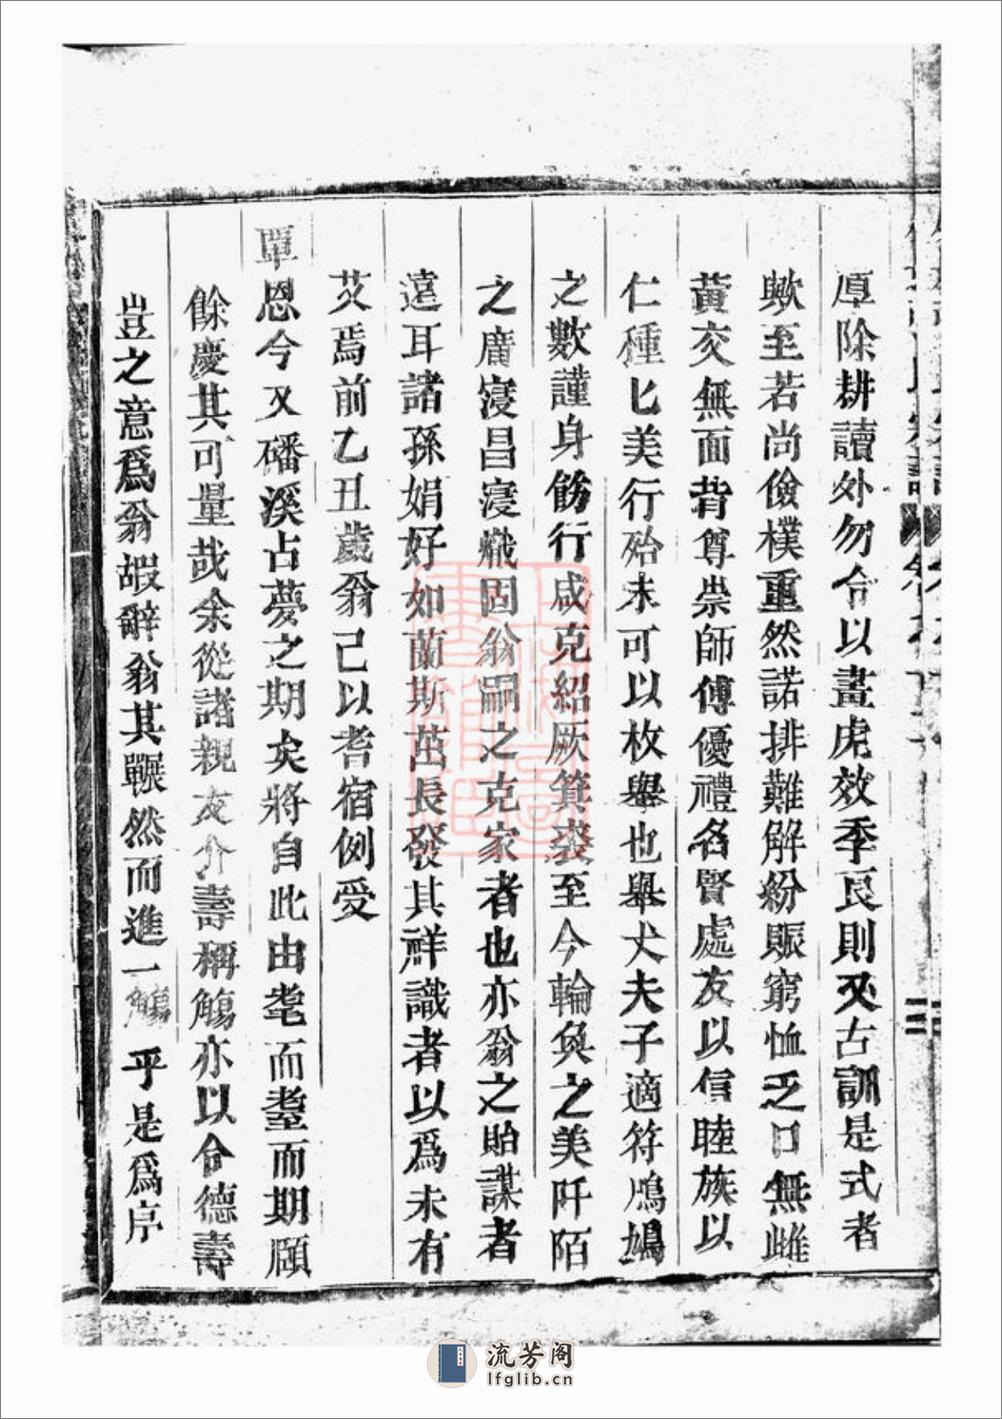 厚除耕讀外勿令以畫虎效季良則又古訓是式者
歟至若尚儉樸重然諾排難解紛賑窮恤乏口無雌
黃交無面背尊崇師傅優禮名賢處友以信睦族以
仁種匕美行殆未可以枚舉也舉丈夫子適符鳲鳩
之數謹身飭行咸克紹厥箕裘至今輪奐之美阡陌
之廣寖昌寖熾固翁嗣之克家者也亦翁之貽謀者
遠耳諸孫娟好如蘭斯茁長發其祥識者以爲未有
艾焉前乙丑歲翁已以耆宿例受
覃恩今又磻溪占夢之期矣將自此由耄而耋而期頤
餘慶其可量哉余從諸親友介壽稱觴亦以合德壽
豈之意爲翁嘏辭翁其囅然而進一觴乎是爲序
流芳阁
lfglib.cn